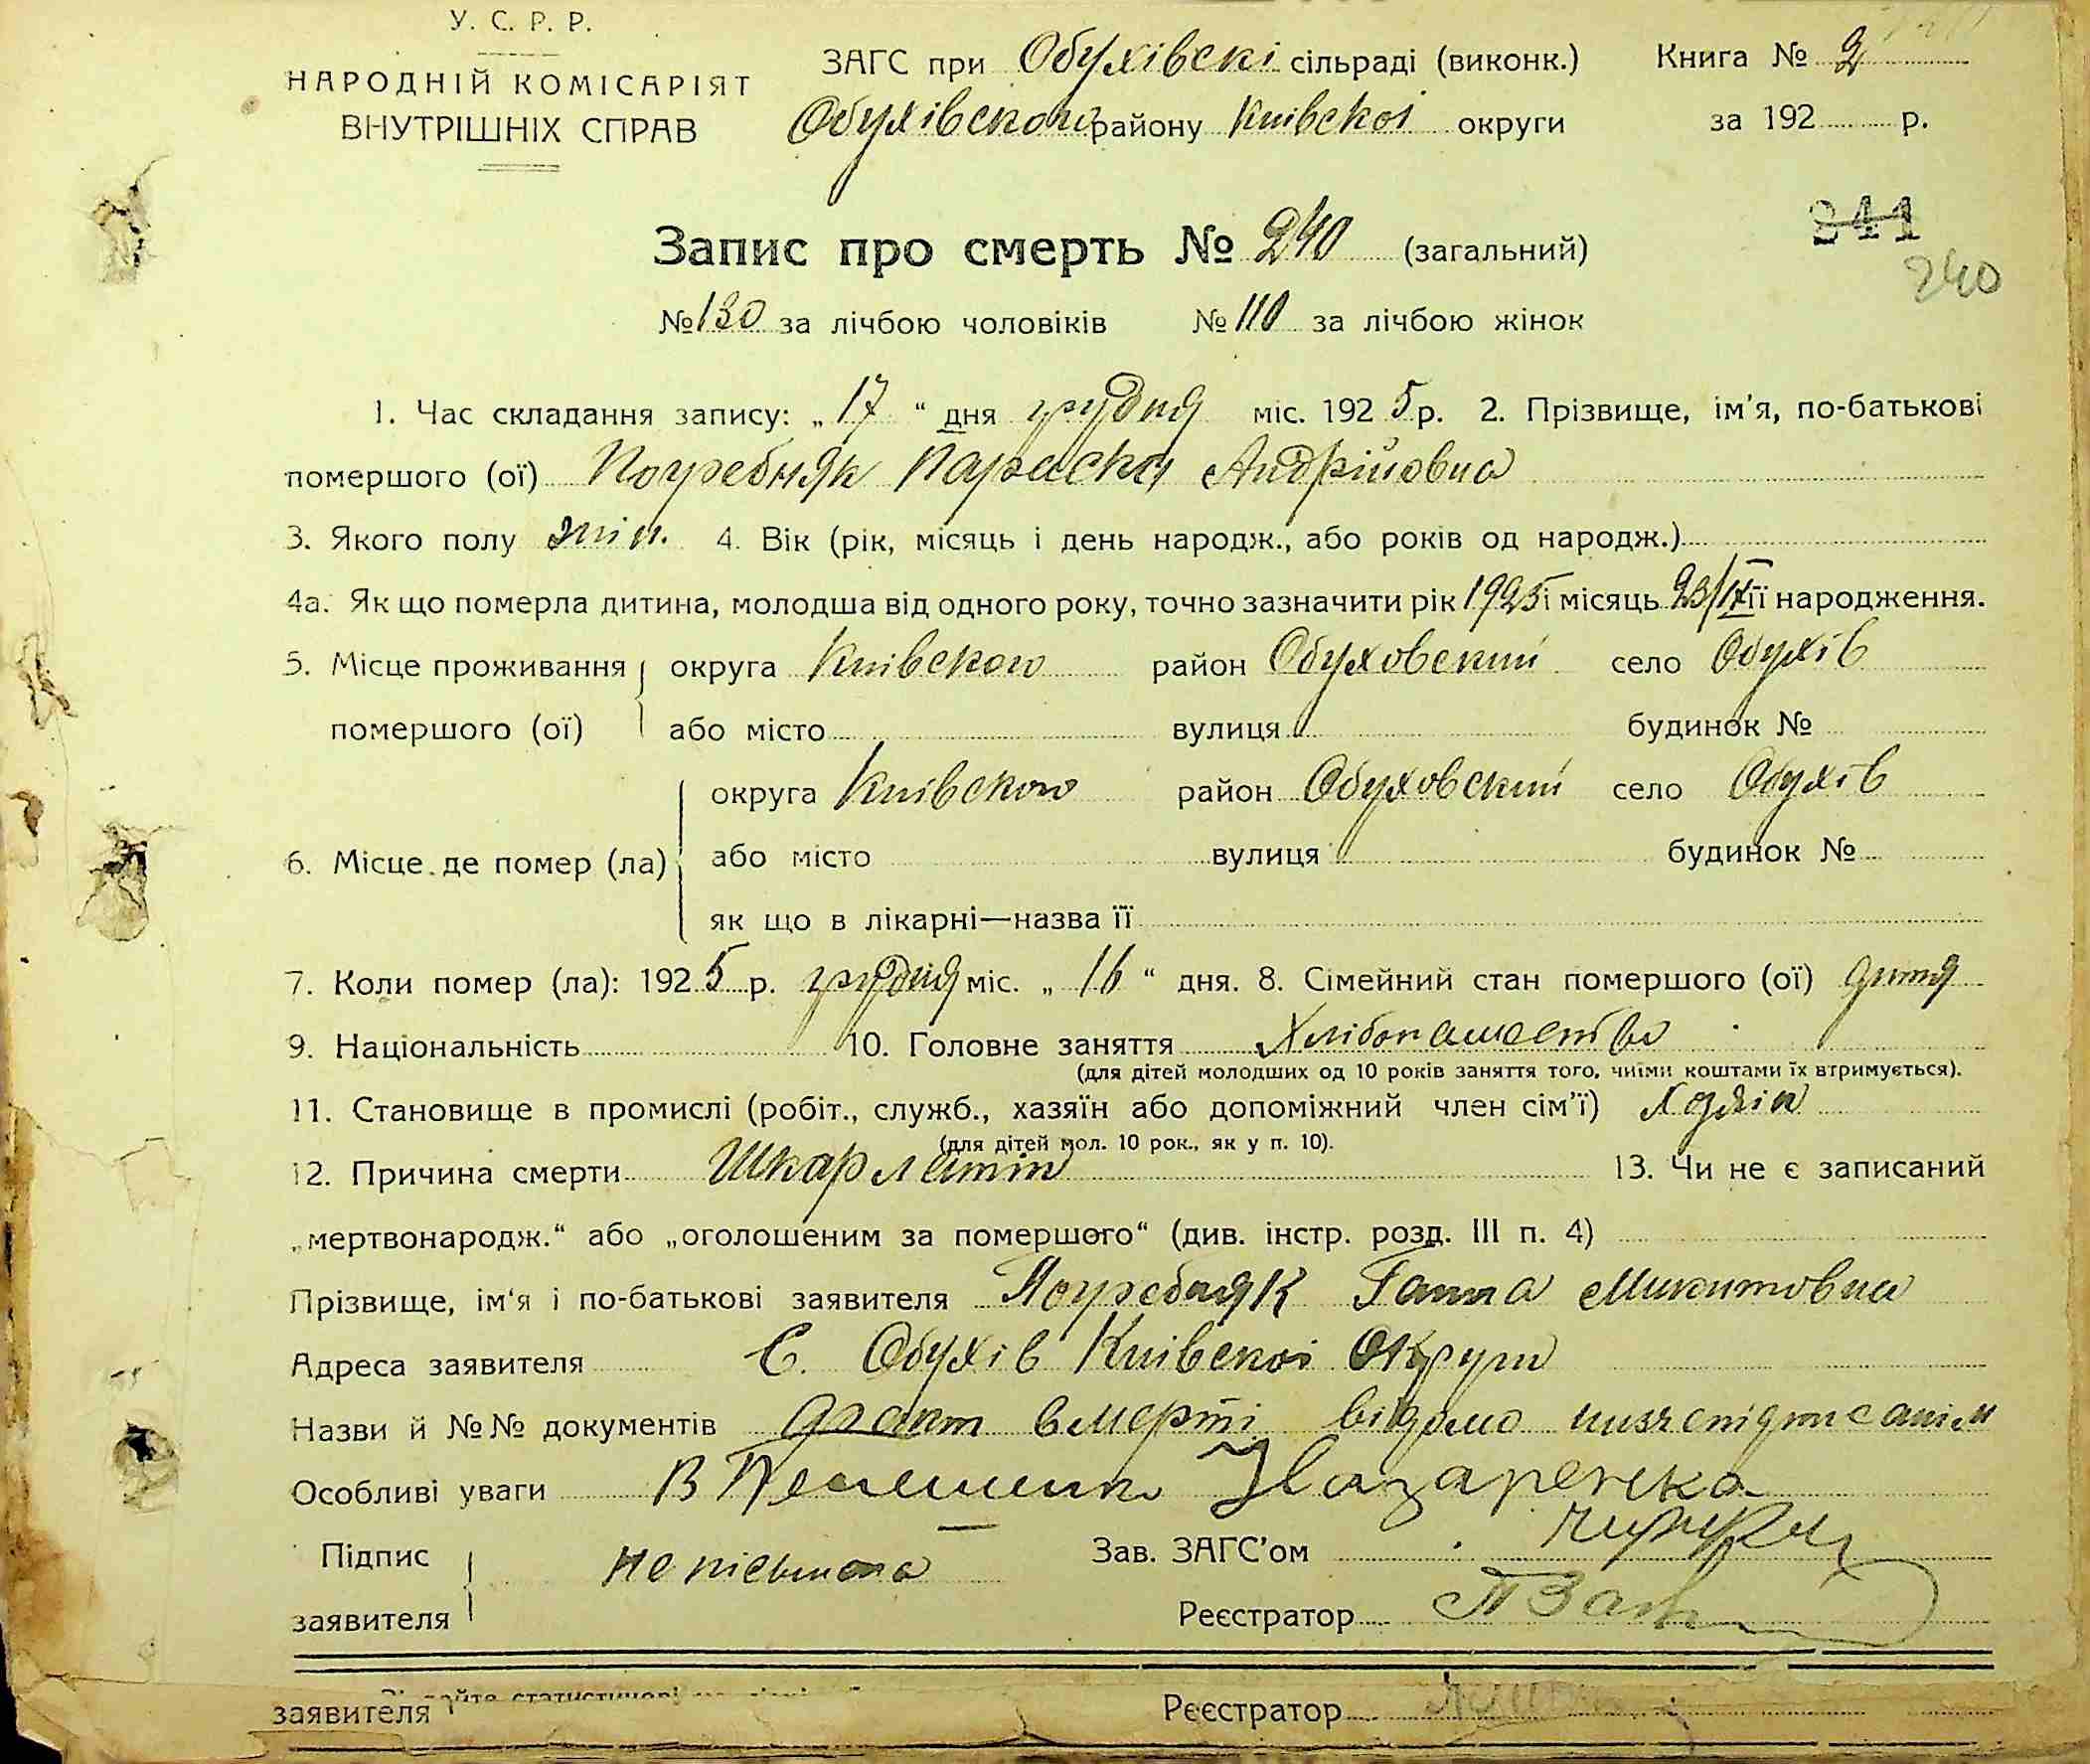 У. С. Р. Р.
НАРОДНІЙ КОМІСАРІЯТ
ВНУТРІШНІХ СПРАВ
ЗАГС при Обухівскі сільраді (виконк.)
Обухівского району Київскоі округи
Книга № 2
за 192 р.
241
240
Запис про смерть № 240 (загальний)
№ 130 за лічбою чоловіків № 110 за лічбою жінок
1. Час складання запису: „17“ дня грудня міс. 1925 р. 2. Прізвище, ім'я, по-батькові
помершого (ої) Погребняк Параска Андрійовна
3. Якого полу жін. 4. Вік (рік, місяць і день народж., або років од народж.)
4а. Як що померла дитина, молодша від одного року, точно зазначити рік 1925 і місяць 23/IX її народження.
5. Місце проживання округа Київского район Обуховский село Обухів
помершого (ої) або місто вулиця будинок №
округа Київского район Обуховский село Обухів
6. Місце де помер (ла) або місто вулиця будинок №
як що в лікарні—назва її
7. Коли помер (ла): 1925 р. грудня міс. „16“ дня. 8. Сімейний стан помершого (ої) дитя
9. Національність 10. Головне заняття Хлібопашество
(для дітей молодших од 10 років заняття того, чиїми коштами їх втримується).
11. Становище в промислі (робіт., служб., хазяїн або допоміжний член сім'ї) Хазяін
(для дітей мол. 10 рок., як у п. 10).
12. Причина смерти Шкарлатин 13. Чи не є записаний
„мертвонародж.“ або „оголошеним за помершого“ (див. інстр. розд. III п. 4)
Прізвище, ім'я і по-батькові заявителя Погребняк Ганна Микитовна
Адреса заявителя С. Обухів Київскоі Округи
Назви й №№ документів Факт вмерті відомо нижепідписанім
Особливі уваги В Назаренко
Підпис
заявителя
не письмена
Зав. ЗАГС'ом
Реєстратор
заявителя Реєстратор